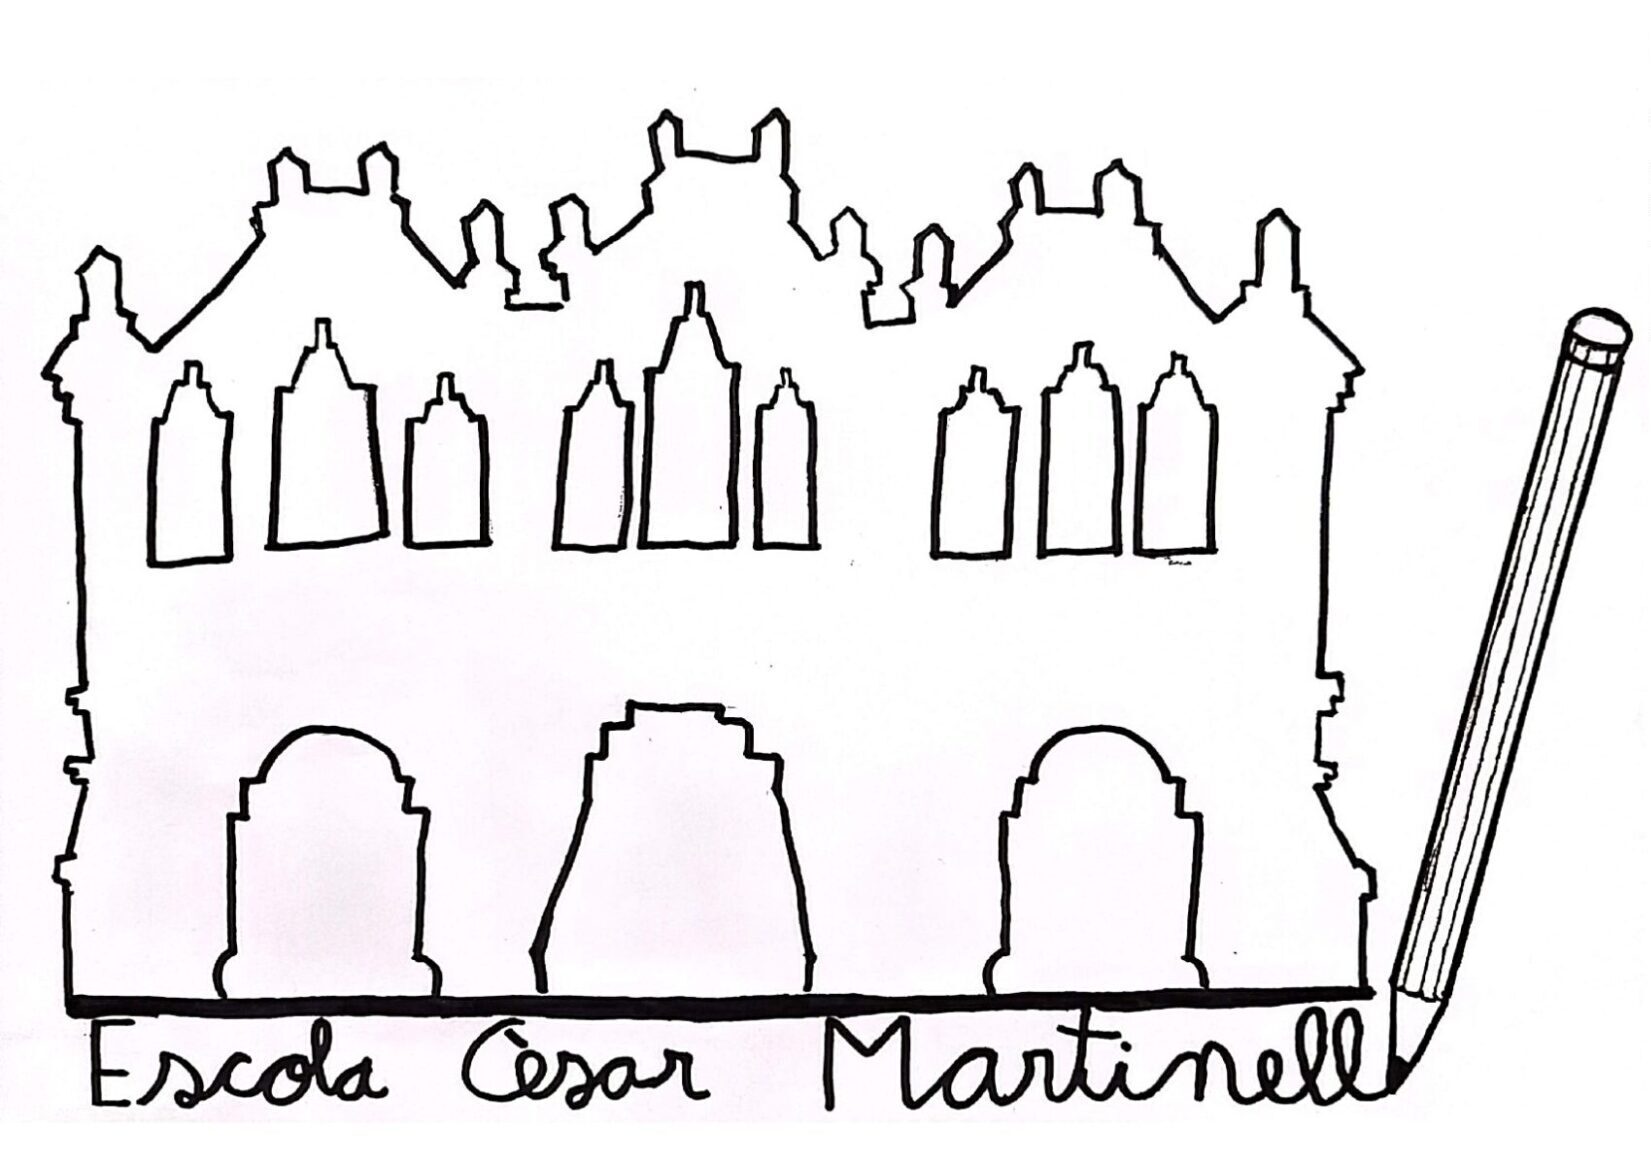 Escola Cèsar Martinell